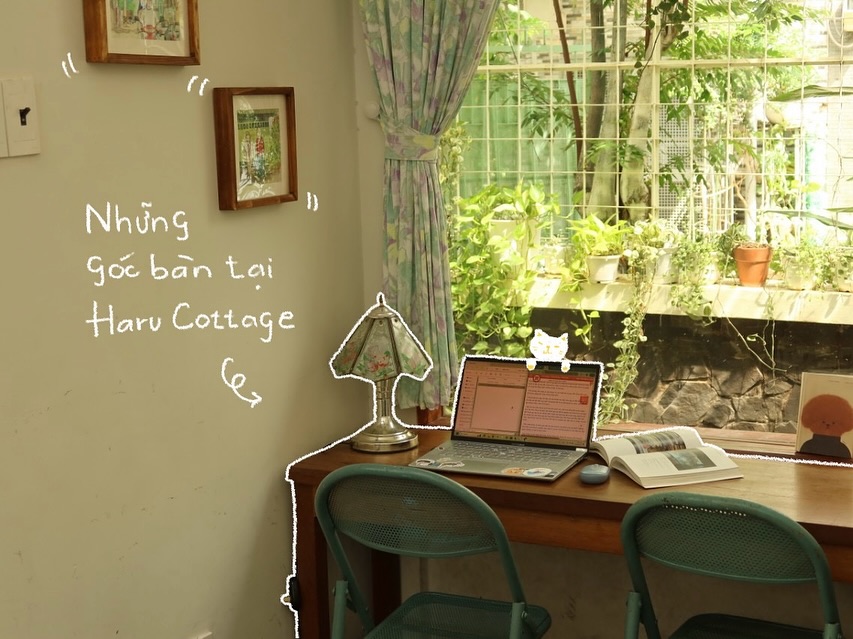 Những
góc bàn tại
Haru Cottage